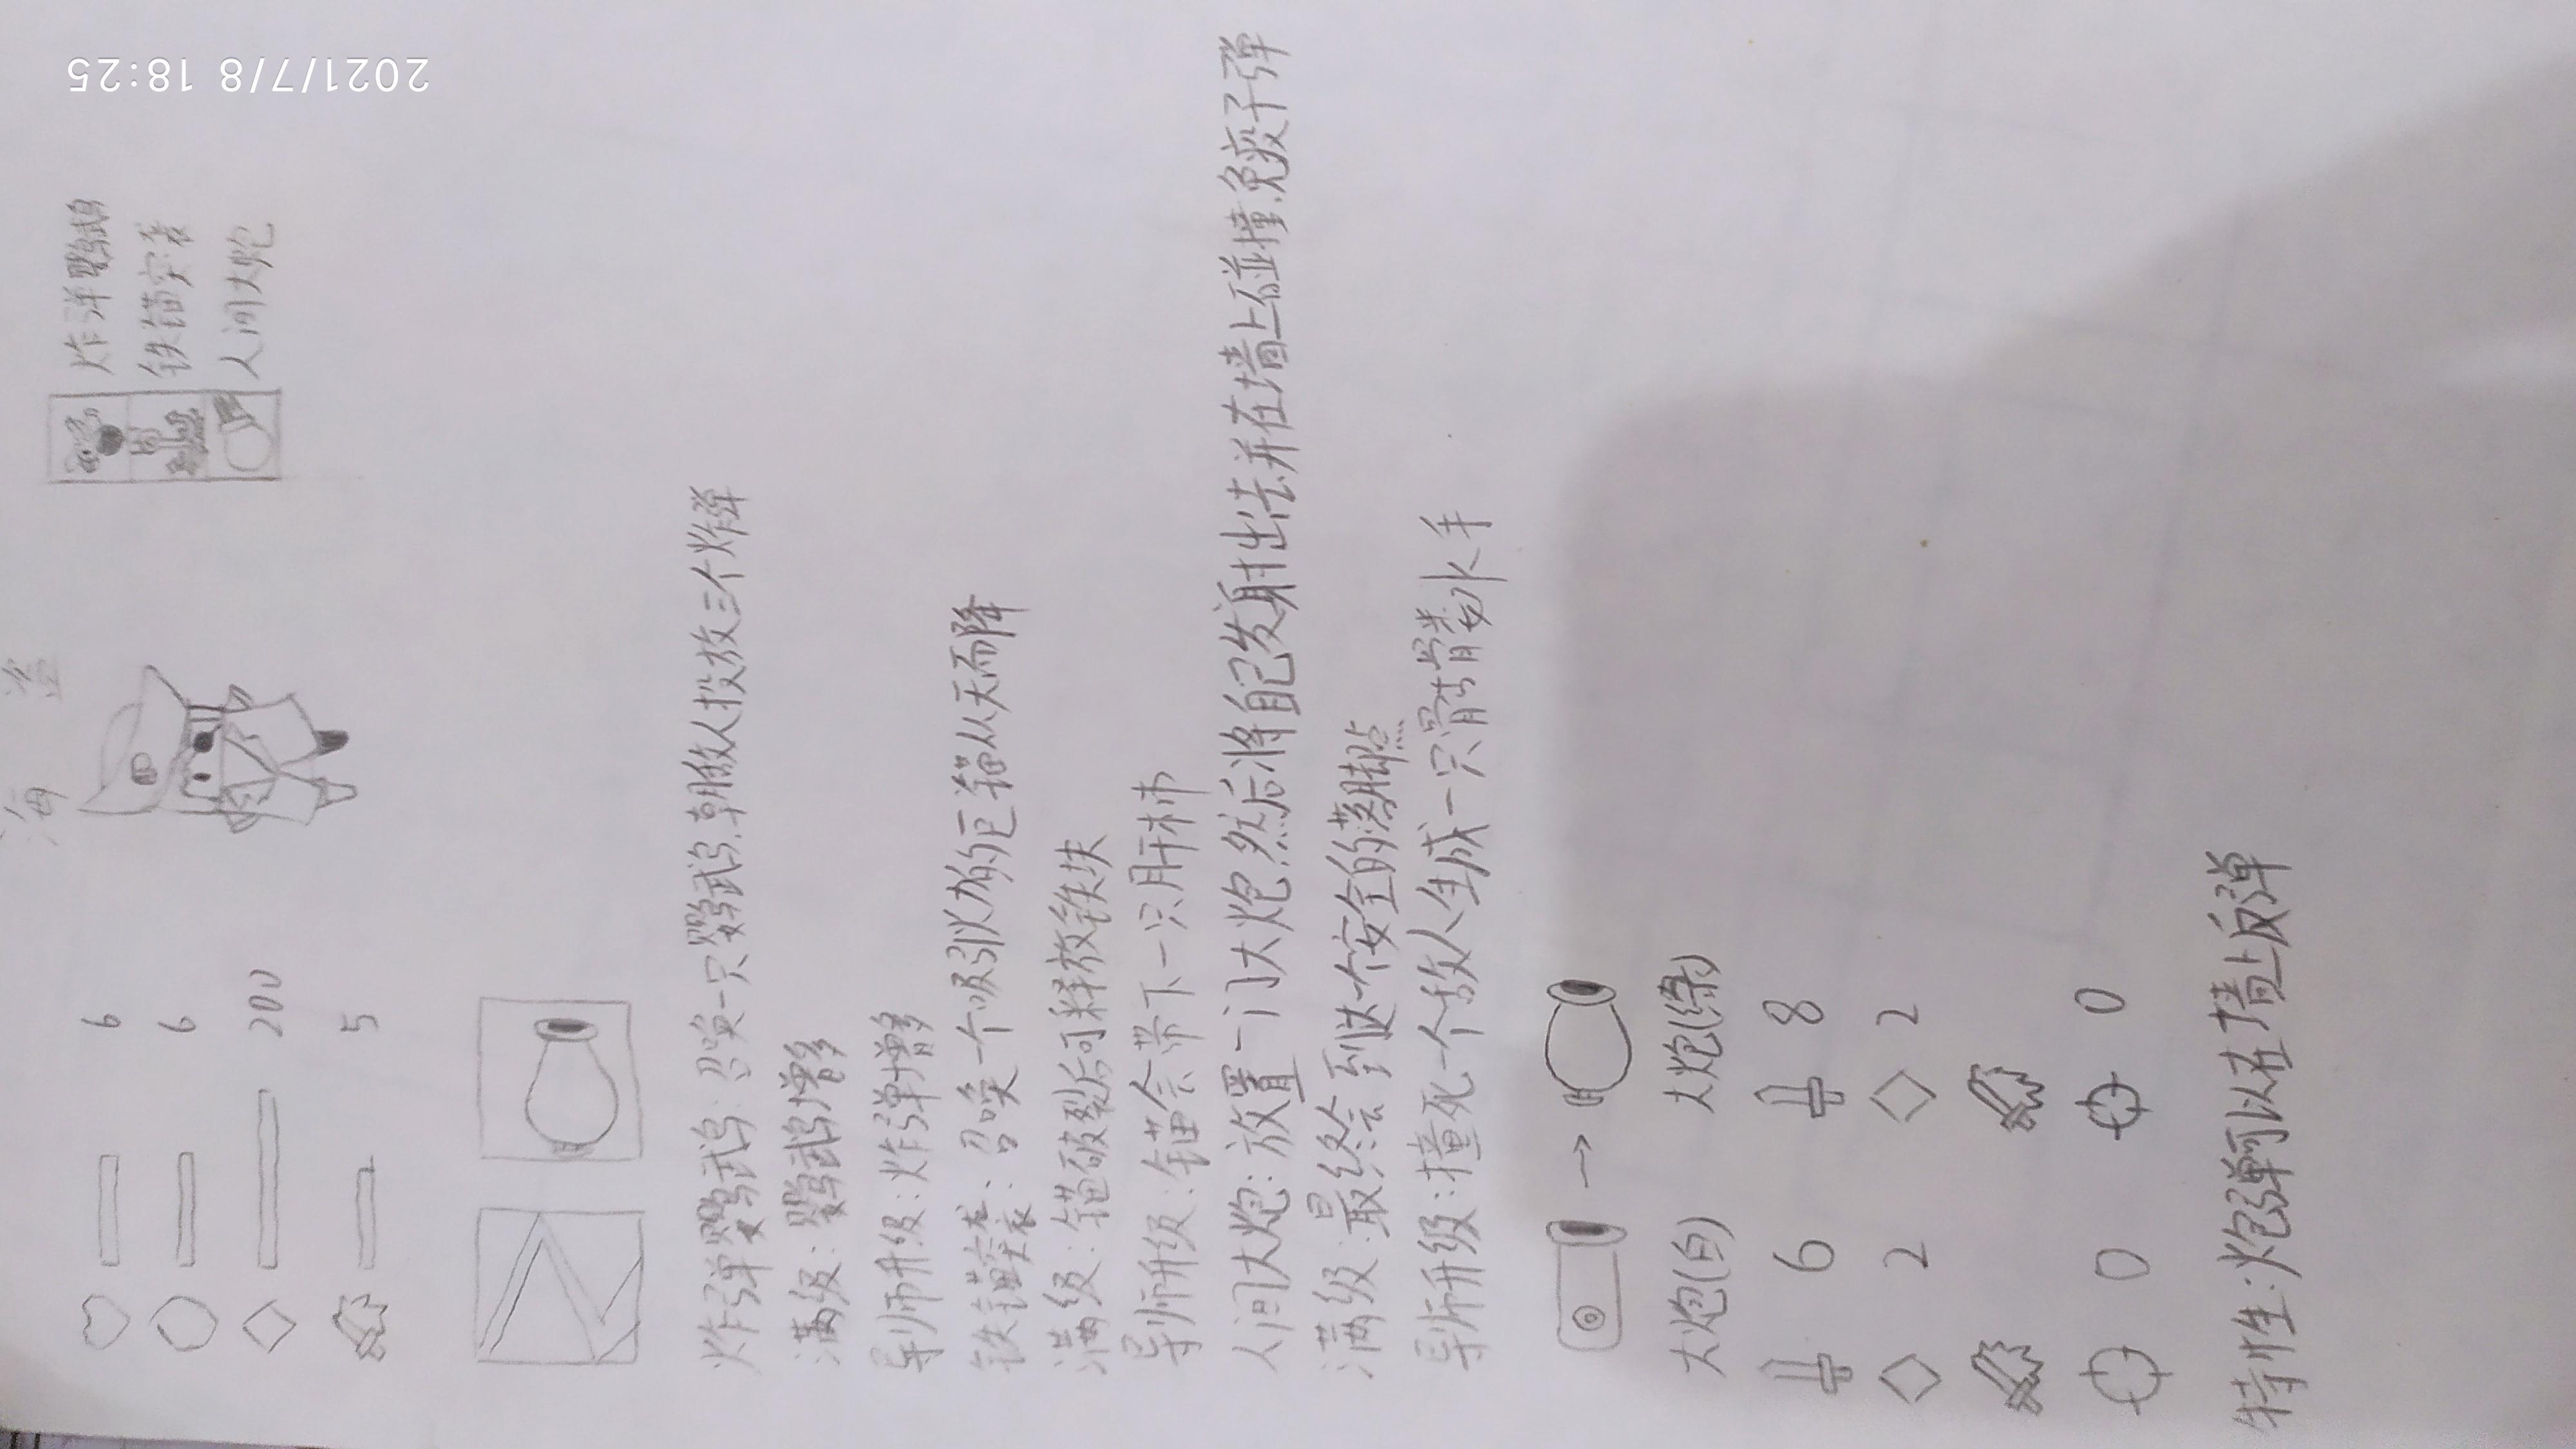 海 盗
6
6
200
5
炸弹鹦鹉
铁锚突袭
人间大炮
炸弹鹦鹉:召唤一只鹦鹉,朝敌人投放三个炸弹
满级:鹦鹉增多
导师升级:炸弹增多
铁锚突袭:召唤一个吸引力的巨锚从天而降
满级:锚破裂后可释放铁块
导师升级:锚会带下一只
人间大炮:放置一门大炮然后将自己发射出去并在墙上碰撞,免疫子弹
满级:最终会到达一个安全的落脚点
导师升级:撞死一个敌人生成一只骷髅水手
大炮(白) → 大炮(绿)
6 8
2 2
0 0
特性:炮弹可以在墙上反弹
2021/7/8 18:25